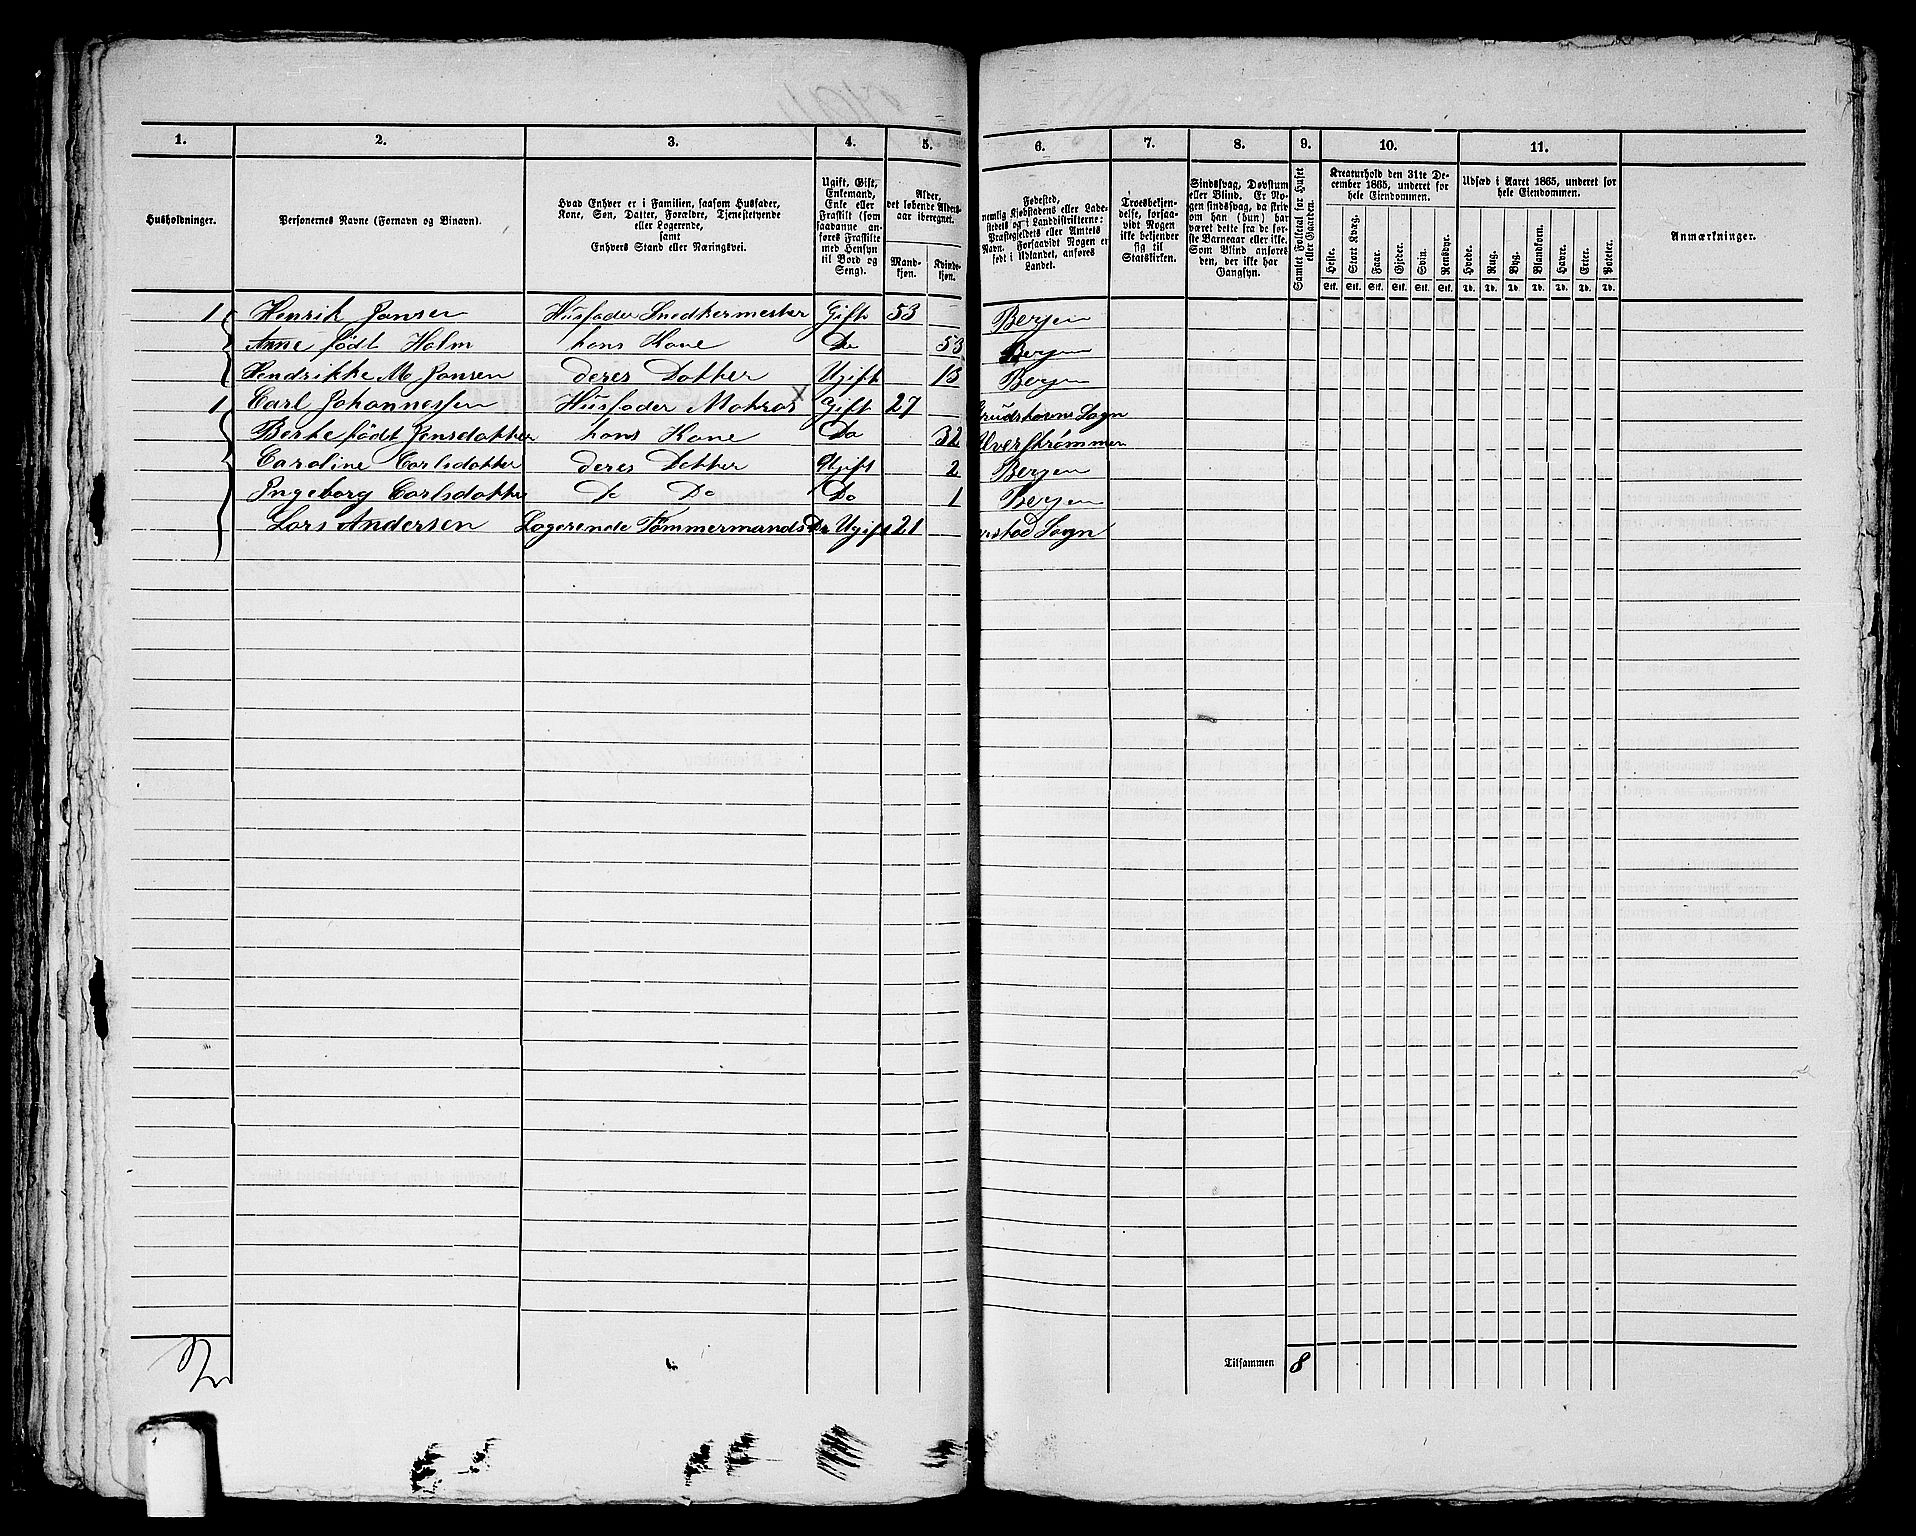 1. 2. 3. 4. 5. 6. 7. 8. 9. 10. 11.
Husholdninger.
Personernes Navne (Fornavn og Binavn).
Hvad Enhver er i Familien, saasom Husfader,
Kone, Søn, Datter, Forældre, Tjenestetyende
eller Logerende,
samt
Enhvers Stand eller Næringsvei.
Ugift, Gift,
Enkemand,
Enke eller
Fraskilt (som
saadanne an-
føres Fraskilte
med Hensyn
til Bord og
Seng).
Alder,
det løbende Alders-
aar iberegnet.
Mand-
kjøn.
Kvinde-
kjøn.
Fødested,
nemlig Kjøbstadens eller Lade-
stedets og i Landdistrikterne:
Præstegjeldets eller Amtets
Navn. Forsaavidt Nogen er
født i Udlandet, anføres
Landet.
Troesbekjen-
delse, forsaa-
vidt Nogen
ikke bekjender
sig til
Statskirken.
Sindssvag, Døvstum
eller Blind. Er No-
gen sindssvag, da skriv
om han (hun) har
været dette fra de før-
ste Barneaar eller ikke.
Som Blind anføres
den, der ikke har
Gangsyn.
Samlet Folketal for Huset
eller Gaarden.
Kreaturhold den 31te De-
cember 1865, underet for
hele Eiendommen.
Heste. Stort Kvæg. Faar. Gjeder. Svin. Rensdyr.
Stk. Stk. Stk. Stk. Stk. Stk.
Udsæd i Aaret 1865, underet for
hele Eiendommen.
Hvede. Rug. Byg. Blandkorn. Havre. Erter. Poteter.
Td. Td. Td. Td. Td. Td. Td.
Anmærkninger.
1 Henrik Jansen Husfader Snedkermester Gift 53 Bergen
Anne født Holm hans Kone Do 53 Bergen
Hendrikke M Jansen deres Datter Ugift 13 Bergen
1 Carl Johannessen Husfader Matros x Gift 27 Sogn
Berte født Jensdatter hans Kone Do 32 Alverstrømmen
Caroline Carlsdatter deres Datter Ugift 2 Bergen
Ingeborg Carlsdatter Do Do Do 1 Bergen
Lars Andersen Logerende Tømmermands Dr Ugift 21 Sogn
2
Tilsammen 8